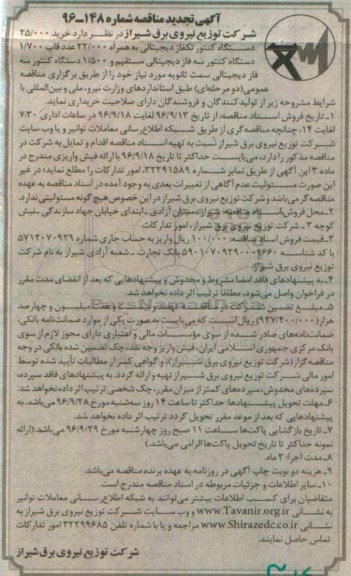 آگهی تجدید مناقصه شماره ۱۴۸-۹۶
شرکت توزیع نیروی برق شیراز در نظر دارد خرید ۲۵/۰۰۰
دستگاه کنتور تکفاز دیجیتالی به همراه ۲۲/۰۰۰ عدد قاب ۱/۷۰۰
دستگاه کنتور سه فاز دیجیتالی مستقیم و ۱/۵۰۰ دستگاه کنتور سه
فاز دیجیتالی سمت ثانویه مورد نیاز خود را از طریق برگزاری مناقصه
عمومی (دو مرحله‌ای) طبق استانداردهای وزارت نیرو، ملی و بین‌المللی با
شرایط مشروحه زیر از تولیدکنندگان و فروشندگان دارای صلاحیت خریداری نماید.
۱- تاریخ فروش اسناد مناقصه: از تاریخ ۹۶/۹/۱۳ لغایت ۹۶/۹/۱۸ در ساعات اداری ۷:۳۰
لغایت ۱۴، چنانچه مناقصه‌گری از طریق شبکه اطلاع‌رسانی معاملات توانیر و یا وب سایت
شرکت توزیع نیروی برق شیراز نسبت به تهیه اسناد مناقصه اقدام و تمایل به شرکت در
مناقصه مذکور را دارد، می‌بایست حداکثر تا تاریخ ۹۶/۹/۱۸ با ارائه فیش واریزی مندرج در
ماده ۳ این آگهی از طریق نمابر شماره ۳۲۲۹۱۵۸۹، امور تدارکات را مطلع نماید؛ در غیر
این صورت مسئولیت عدم آگاهی از تغییرات بعدی به وجود آمده در اسناد مناقصه به عهده
مناقصه‌گر می‌باشد و شرکت توزیع نیروی برق شیراز در این خصوص هیچ‌گونه مسئولیتی ندارد.
۲- محل فروش اسناد مناقصه: شیراز، میدان آزادی - ابتدای خیابان جهاد سازندگی - نبش
کوچه ۳ - شرکت توزیع نیروی برق شیراز، امور تدارکات
۳- قیمت فروش اسناد مناقصه: ۱۰۰/۰۰۰ ریال واریز به حساب جاری شماره ۵۷۱۳۰۷۰۹۳۹
با کد شناسه ۵۹۰۱۰۷۰۹۳۹۰۰۰۹۶۶۰ بانک تجارت - شعبه آزادی شیراز به نام شرکت
توزیع نیروی برق شیراز.
۴- به پیشنهادهای فاقد امضا مشروط و مخدوش و پیشنهادهایی که بعد از انقضای مدت مقرر
در فراخوان واصل می‌شود، مطلقا ترتیب اثر داده نخواهد شد.
۵- مبلغ تضمین شرکت در مناقصه نهصد و بیست و هفت میلیون و چهارصد
هزار (۹۲۷/۴۰۰/۰۰۰) ریال است که می‌بایست به صورت یکی از موارد ضمانت‌نامه بانکی،
ضمانت‌نامه‌های صادر شده از سوی مؤسسات مالی و اعتباری دارای مجوز لازم از سوی
بانک مرکزی جمهوری اسلامی ایران، فیش واریز وجه نقد، چک تضمین شده بانکی در وجه
مناقصه‌گزار (شرکت توزیع نیروی برق شیراز)، و گواهی کسر از مطالبات تأیید شده توسط
امور مالی شرکت توزیع نیروی برق شیراز تهیه و ارائه گردد. به پیشنهادهای فاقد سپرده،
سپرده‌های مخدوش، سپرده‌های کمتر از میزان مقرر، چک شخصی ترتیب اثر داده نخواهد شد.
۶- مهلت تحویل پیشنهادها: حداکثر تا ساعت ۱۴ روز سه‌شنبه مورخ ۹۶/۹/۲۸ می‌باشد. به
پیشنهادهایی که بعد از موعد مقرر تحویل گردد ترتیب اثر داده نخواهد شد.
۷- تاریخ بازگشایی پاکت‌ها ساعت ۱۱ صبح روز چهارشنبه مورخ ۹۶/۹/۲۹ می‌باشد (ارائه
نمونه حداکثر تا تاریخ تحویل پاکت‌ها الزامی می‌باشد.)
۸- مدت اجرا: ۲ ماه.
۹- هزینه دو نوبت چاپ آگهی در روزنامه به عهده برنده مناقصه می‌باشد.
۱۰- سایر اطلاعات و جزئیات مربوطه در اسناد مناقصه مندرج است.
متقاضیان برای کسب اطلاعات بیشتر می‌توانند به شبکه اطلاع‌رسانی معاملات توانیر
به نشانی www.Tavanir.org.ir و وب سایت شرکت توزیع نیروی برق شیراز به
نشانی www.Shirazedc.co.ir مراجعه و یا با شماره تلفن ۳۲۲۹۹۶۸۵ امور تدارکات
تماس حاصل نمایند.
شرکت توزیع نیروی برق شیراز